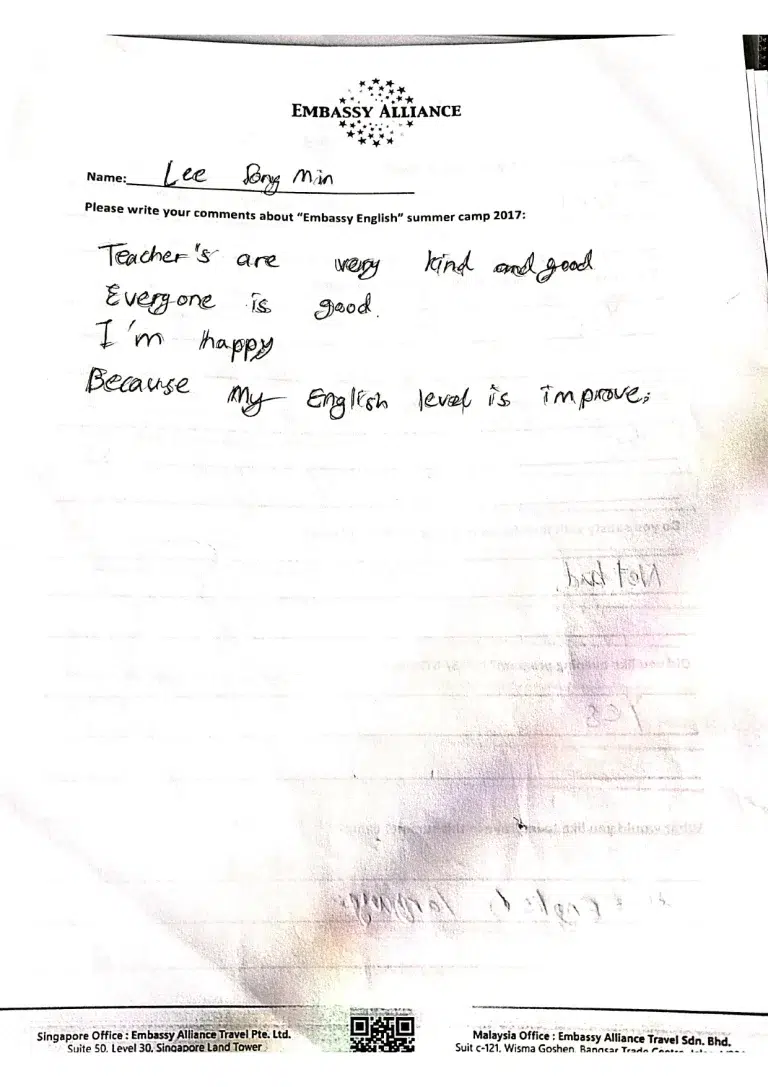 EMBASSY ALLIANCE
Name: Lee Song Min
Please write your comments about "Embassy English" summer camp 2017:
Teacher's are very kind and good
Everyone is good.
I'm happy
Because my English level is improve.
Not bad
Yes
English language
Singapore Office : Embassy Alliance Travel Pte. Ltd.
Suite 50, Level 30, Singapore Land Tower
Malaysia Office : Embassy Alliance Travel Sdn. Bhd.
Suit c-121, Wisma Goshen, Bangsar Trade